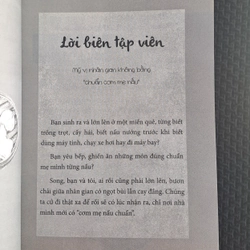 Lời biên tập viên
Mỹ vị nhân gian không bằng
"chuẩn cơm mẹ nấu"
Bạn sinh ra và lớn lên ở một miền quê, từng biết
trồng trọt, cấy hái, biết nấu nướng trước khi biết
dùng máy tính, chạy xe hơi hay đi máy bay?
Bạn yêu bếp, ghiền ăn những món dùng chuẩn
mẹ mình từng nấu?
Song, bạn và tôi, ai rồi cũng phải lớn lên, bươn
chải giữa nhân gian có ngọt bùi lẫn cay đắng. Chúng
ta cứ đi thật xa để rồi sẽ có lúc nhận ra, chỉ nơi nhà
mình mới có "cơm mẹ nấu chuẩn".